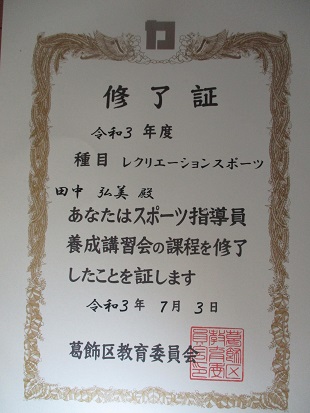 修了証
令和3年度
種目 レクリエーションスポーツ
田中 弘美 殿
あなたはスポーツ指導員
養成講習会の課程を修了
したことを証します
令和3年 7月 3日
葛飾区教育委員会